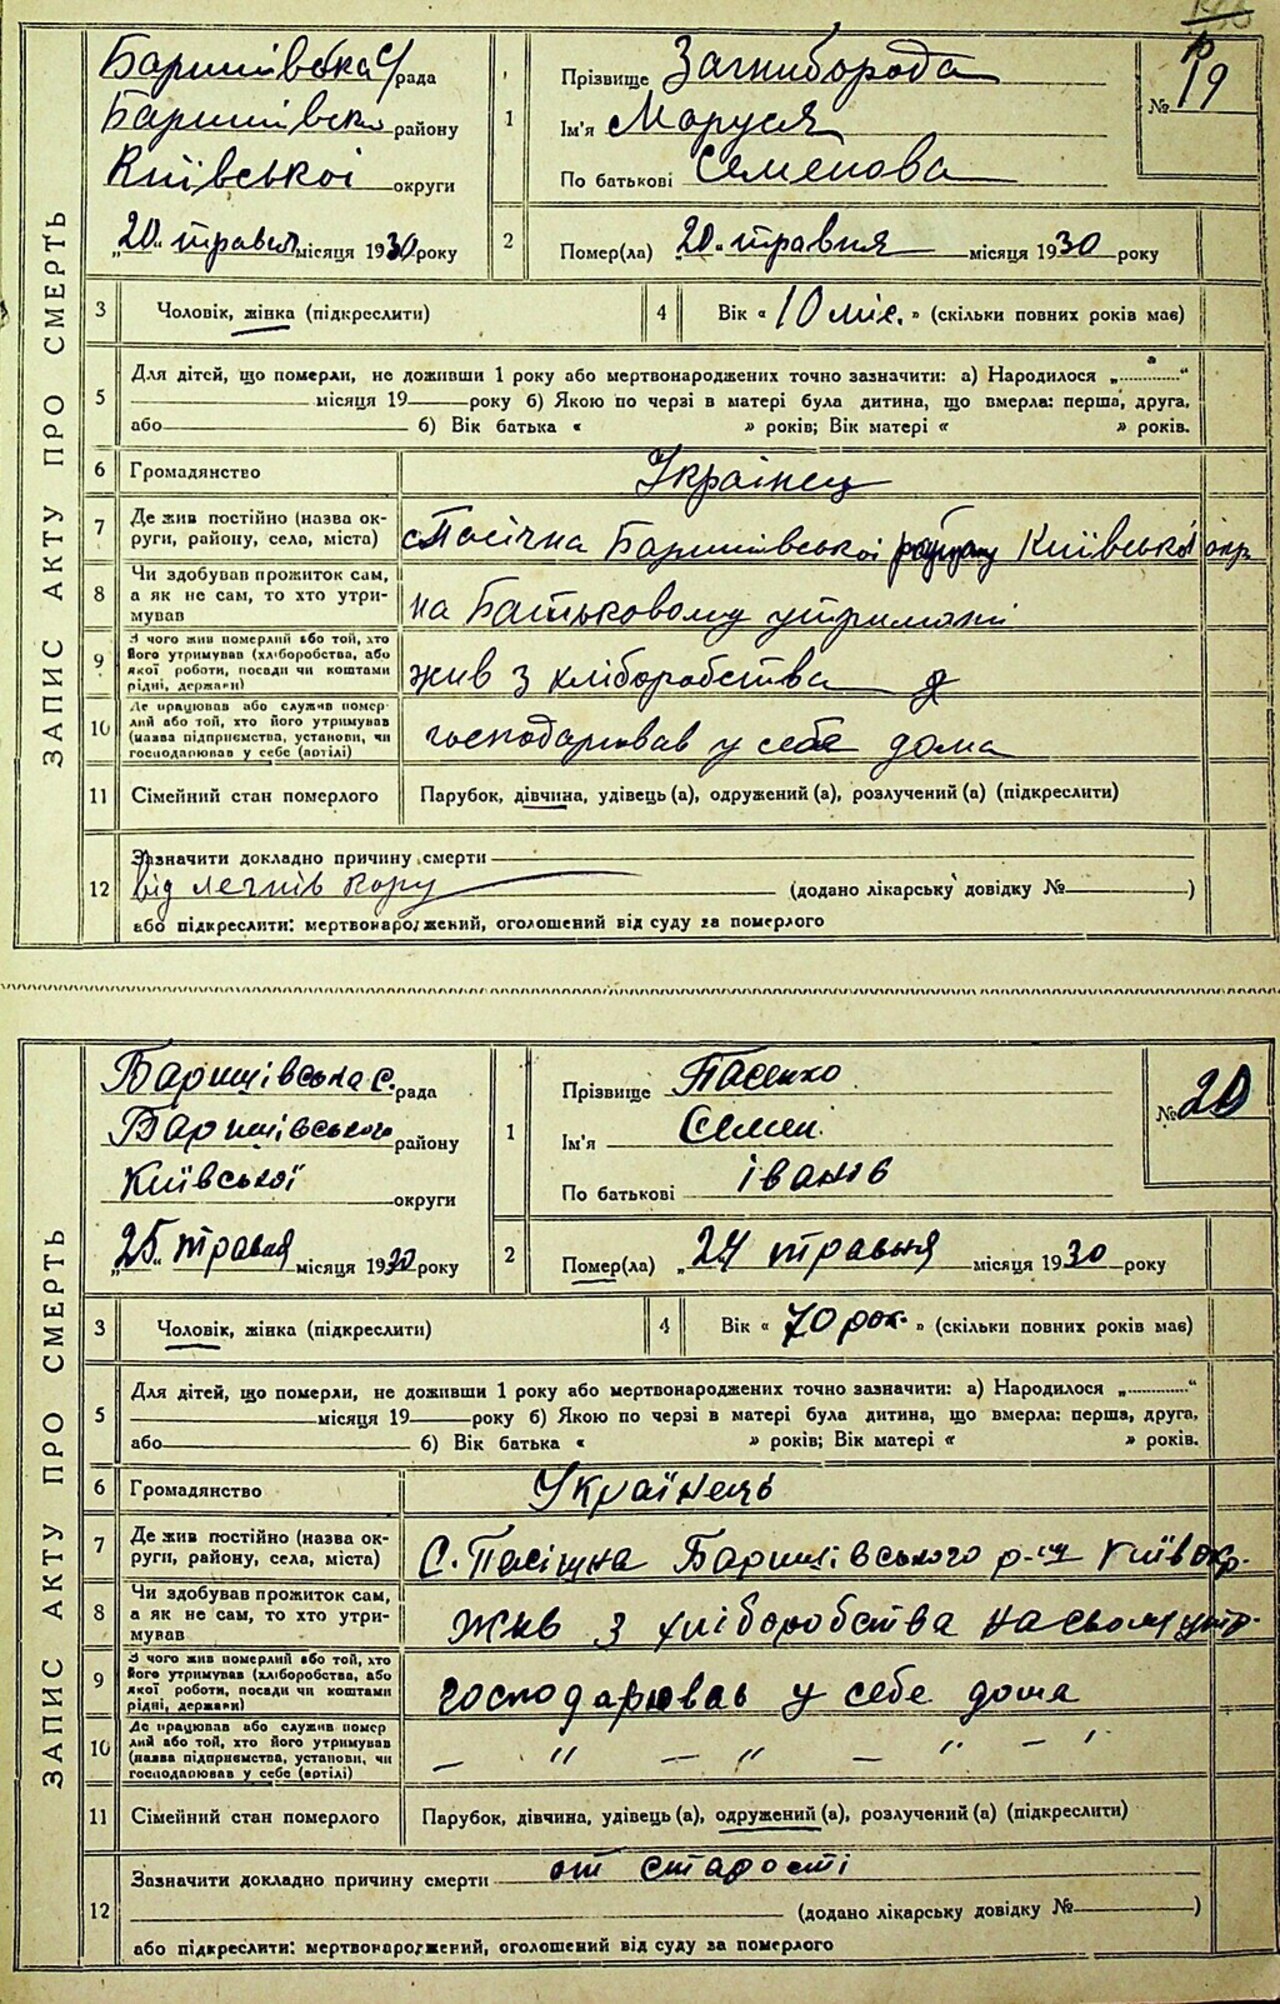 ЗАПИС АКТУ ПРО СМЕРТЬ
Баришівська с/рада
Баришівсько району
Київської округи
„20„ травня місяця 1930 року
1
Прізвище Загниборода
Ім'я Маруся
По батькові Семенова
№ 19
2
Помер(ла) „20„ травня місяця 1930 року
3
Чоловік, жінка (підкреслити)
4
Вік « 10 міс. » (скільки повних років має)
5
Для дітей, що померли, не доживши 1 року або мертвонароджених точно зазначити: а) Народилося „ “
місяця 19 року б) Якою по черзі в матері була дитина, що вмерла: перша, друга,
або б) Вік батька « » років; Вік матері « » років.
6
Громадянство
Українец
7
Де жив постійно (назва ок-
руги, району, села, міста)
с Пасічна Баришівської району Київської окр
8
Чи здобував прожиток сам,
а як не сам, то хто утри-
мував
на Батьковому утримані
9
З чого жив померлий або той, хто
його утримував (хліборобства, або
якої роботи, посади чи коштами
рідні, держави)
жив з хліборобства
10
Де працював або служив помер
лий або той, хто його утримував
(назва підприємства, установи, чи
господарював у себе (артілі)
господарював у себе дома
11
Сімейний стан померлого
Парубок, дівчина, удівець (а), одружений (а), розлучений (а) (підкреслити)
12
Зазначити докладно причину смерти
від легнів кору (додано лікарську довідку № )
або підкреслити: мертвонароджений, оголошений від суду за померлого
ЗАПИС АКТУ ПРО СМЕРТЬ
Баришівська с. рада
Баришівського району
Київської округи
„25„ травня місяця 1930 року
1
Прізвище Пасенко
Ім'я Семен
По батькові іванів
№ 20
2
Помер(ла) „24 травьня місяця 1930 року
3
Чоловік, жінка (підкреслити)
4
Вік « 70 рок. » (скільки повних років має)
5
Для дітей, що померли, не доживши 1 року або мертвонароджених точно зазначити: а) Народилося „ “
місяця 19 року б) Якою по черзі в матері була дитина, що вмерла: перша, друга,
або б) Вік батька « » років; Вік матері « » років.
6
Громадянство
Українець
7
Де жив постійно (назва ок-
руги, району, села, міста)
С. Пасішна Баришівського р-ну Київ окр.
8
Чи здобував прожиток сам,
а як не сам, то хто утри-
мував
Жив з хліборобства на сьому утр.
9
З чого жив померлий або той, хто
його утримував (хліборобства, або
якої роботи, посади чи коштами
рідні, держави)
господарював у себе дома
10
Де працював або служив помер
лий або той, хто його утримував
(назва підприємства, установи, чи
господарював у себе (артілі)
— " — " — " — '
11
Сімейний стан померлого
Парубок, дівчина, удівець (а), одружений (а), розлучений (а) (підкреслити)
12
Зазначити докладно причину смерти от старості
(додано лікарську довідку № )
або підкреслити: мертвонароджений, оголошений від суду за померлого